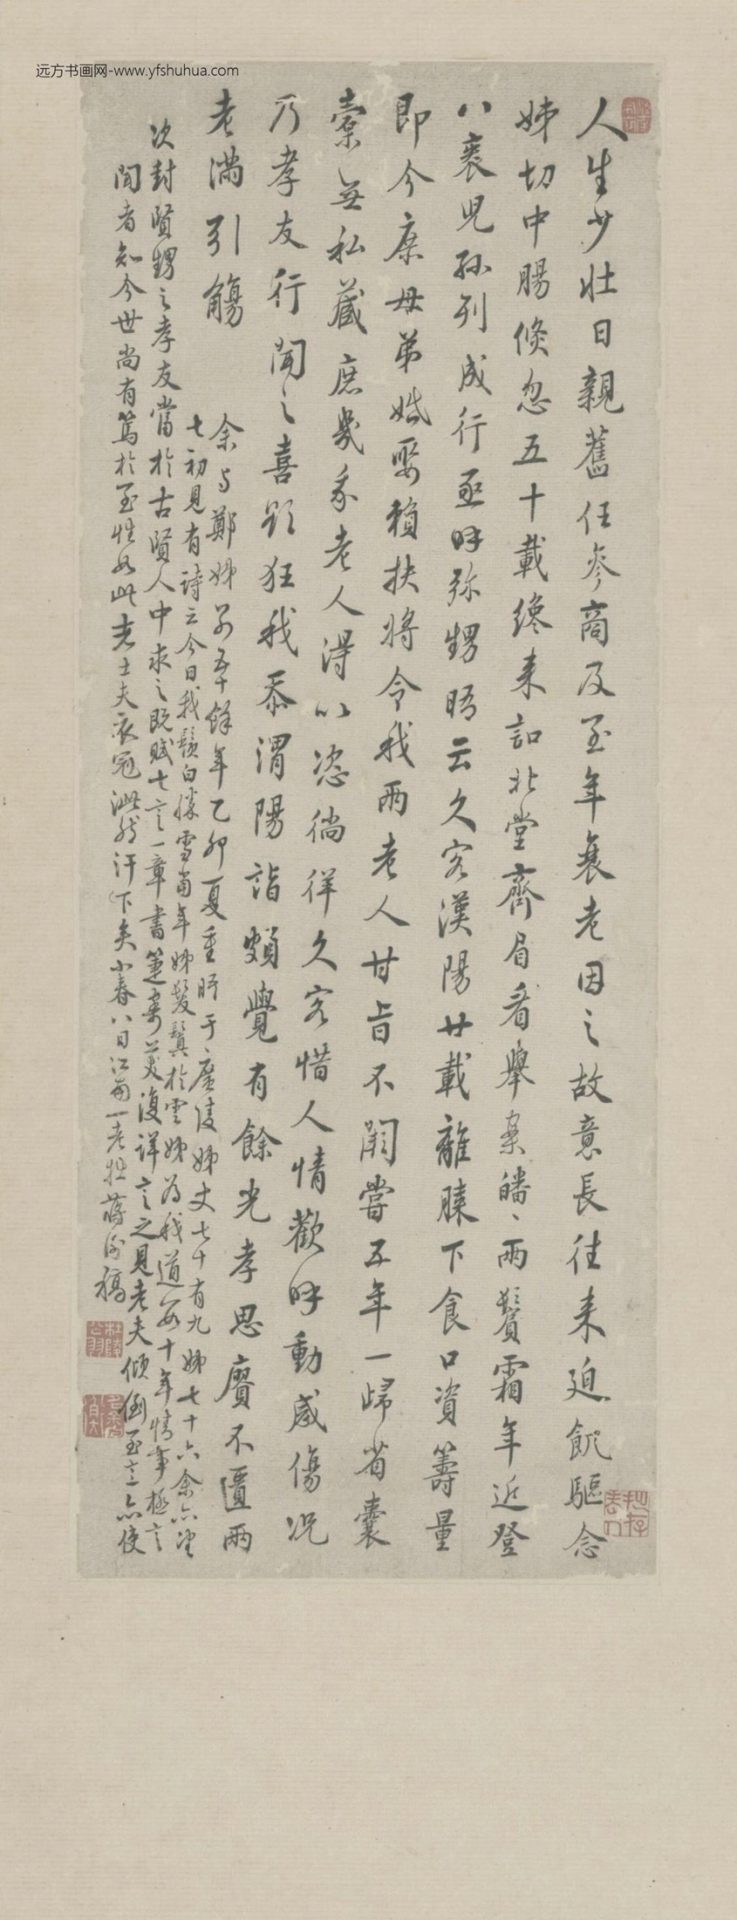 远方书画网-www.yfshuhua.com
人生少壮日親舊任參商及至年衰老因之故意長往来迫飢驅念
姊切中腸倏忽五十載纔来詣北堂齊眉看舉案皤、兩鬢霜年近登
八袠兒孫列成行亟呼弥甥晤云久客漢陽廿載離膝下食口資籌量
即今庶母弟婚娶賴扶将令我兩老人甘旨不闕嘗五年一歸省囊
橐無私藏庶幾我老人得以恣徜徉久客惜人情歡呼動感傷况
乃孝友行聞之喜欲狂我忝渭陽詣頗覺有餘光孝思賡不匱兩
老満引觴
余與鄭姊別五十餘年乙卯夏重晤于廣陵姊丈七十有九姊七十六余六望
七初見有詩云今日我鬚白勝雪當年姊髮鬒於雲姊為我道
次封賢甥之孝友當於古賢人中求之既賦七言一章書箑寄英復詳言之見老夫傾倒至意亦使
聞者知今世尚有篤於至性如此老士夫衣冠泚然汗下矣小春八日江南一老